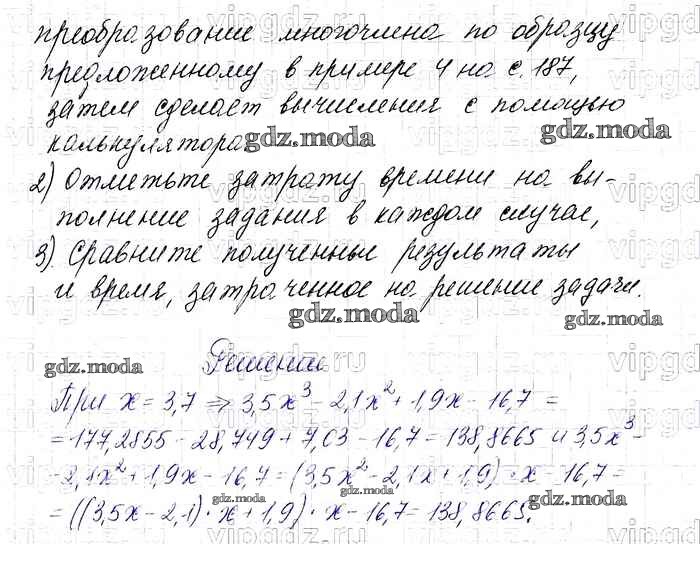 преобразование многочлена по образцу
предложенному в примере 4 на с. 187,
затем сделает вычисления с помощью
калькулятора
gdz.moda
gdz.moda
2) Отметьте затрату времени на вы-
полнение задания в каждом случае,
3) Сравните полученные результаты
и время, затраченное на решение задачи.
gdz.moda
gdz.moda
gdz.moda
Решение
При x = 3,7 ⇒ 3,5x³ - 2,1x² + 1,9x - 16,7 =
= 177,2855 - 28,749 + 7,03 - 16,7 = 138,8665 и 3,5x³ -
- 2,1x² + 1,9x - 16,7 = (3,5x² - 2,1x + 1,9) · x - 16,7 =
gdz.moda
gdz.moda
gdz.moda
= ((3,5x - 2,1) · x + 1,9) · x - 16,7 = 138,8665.